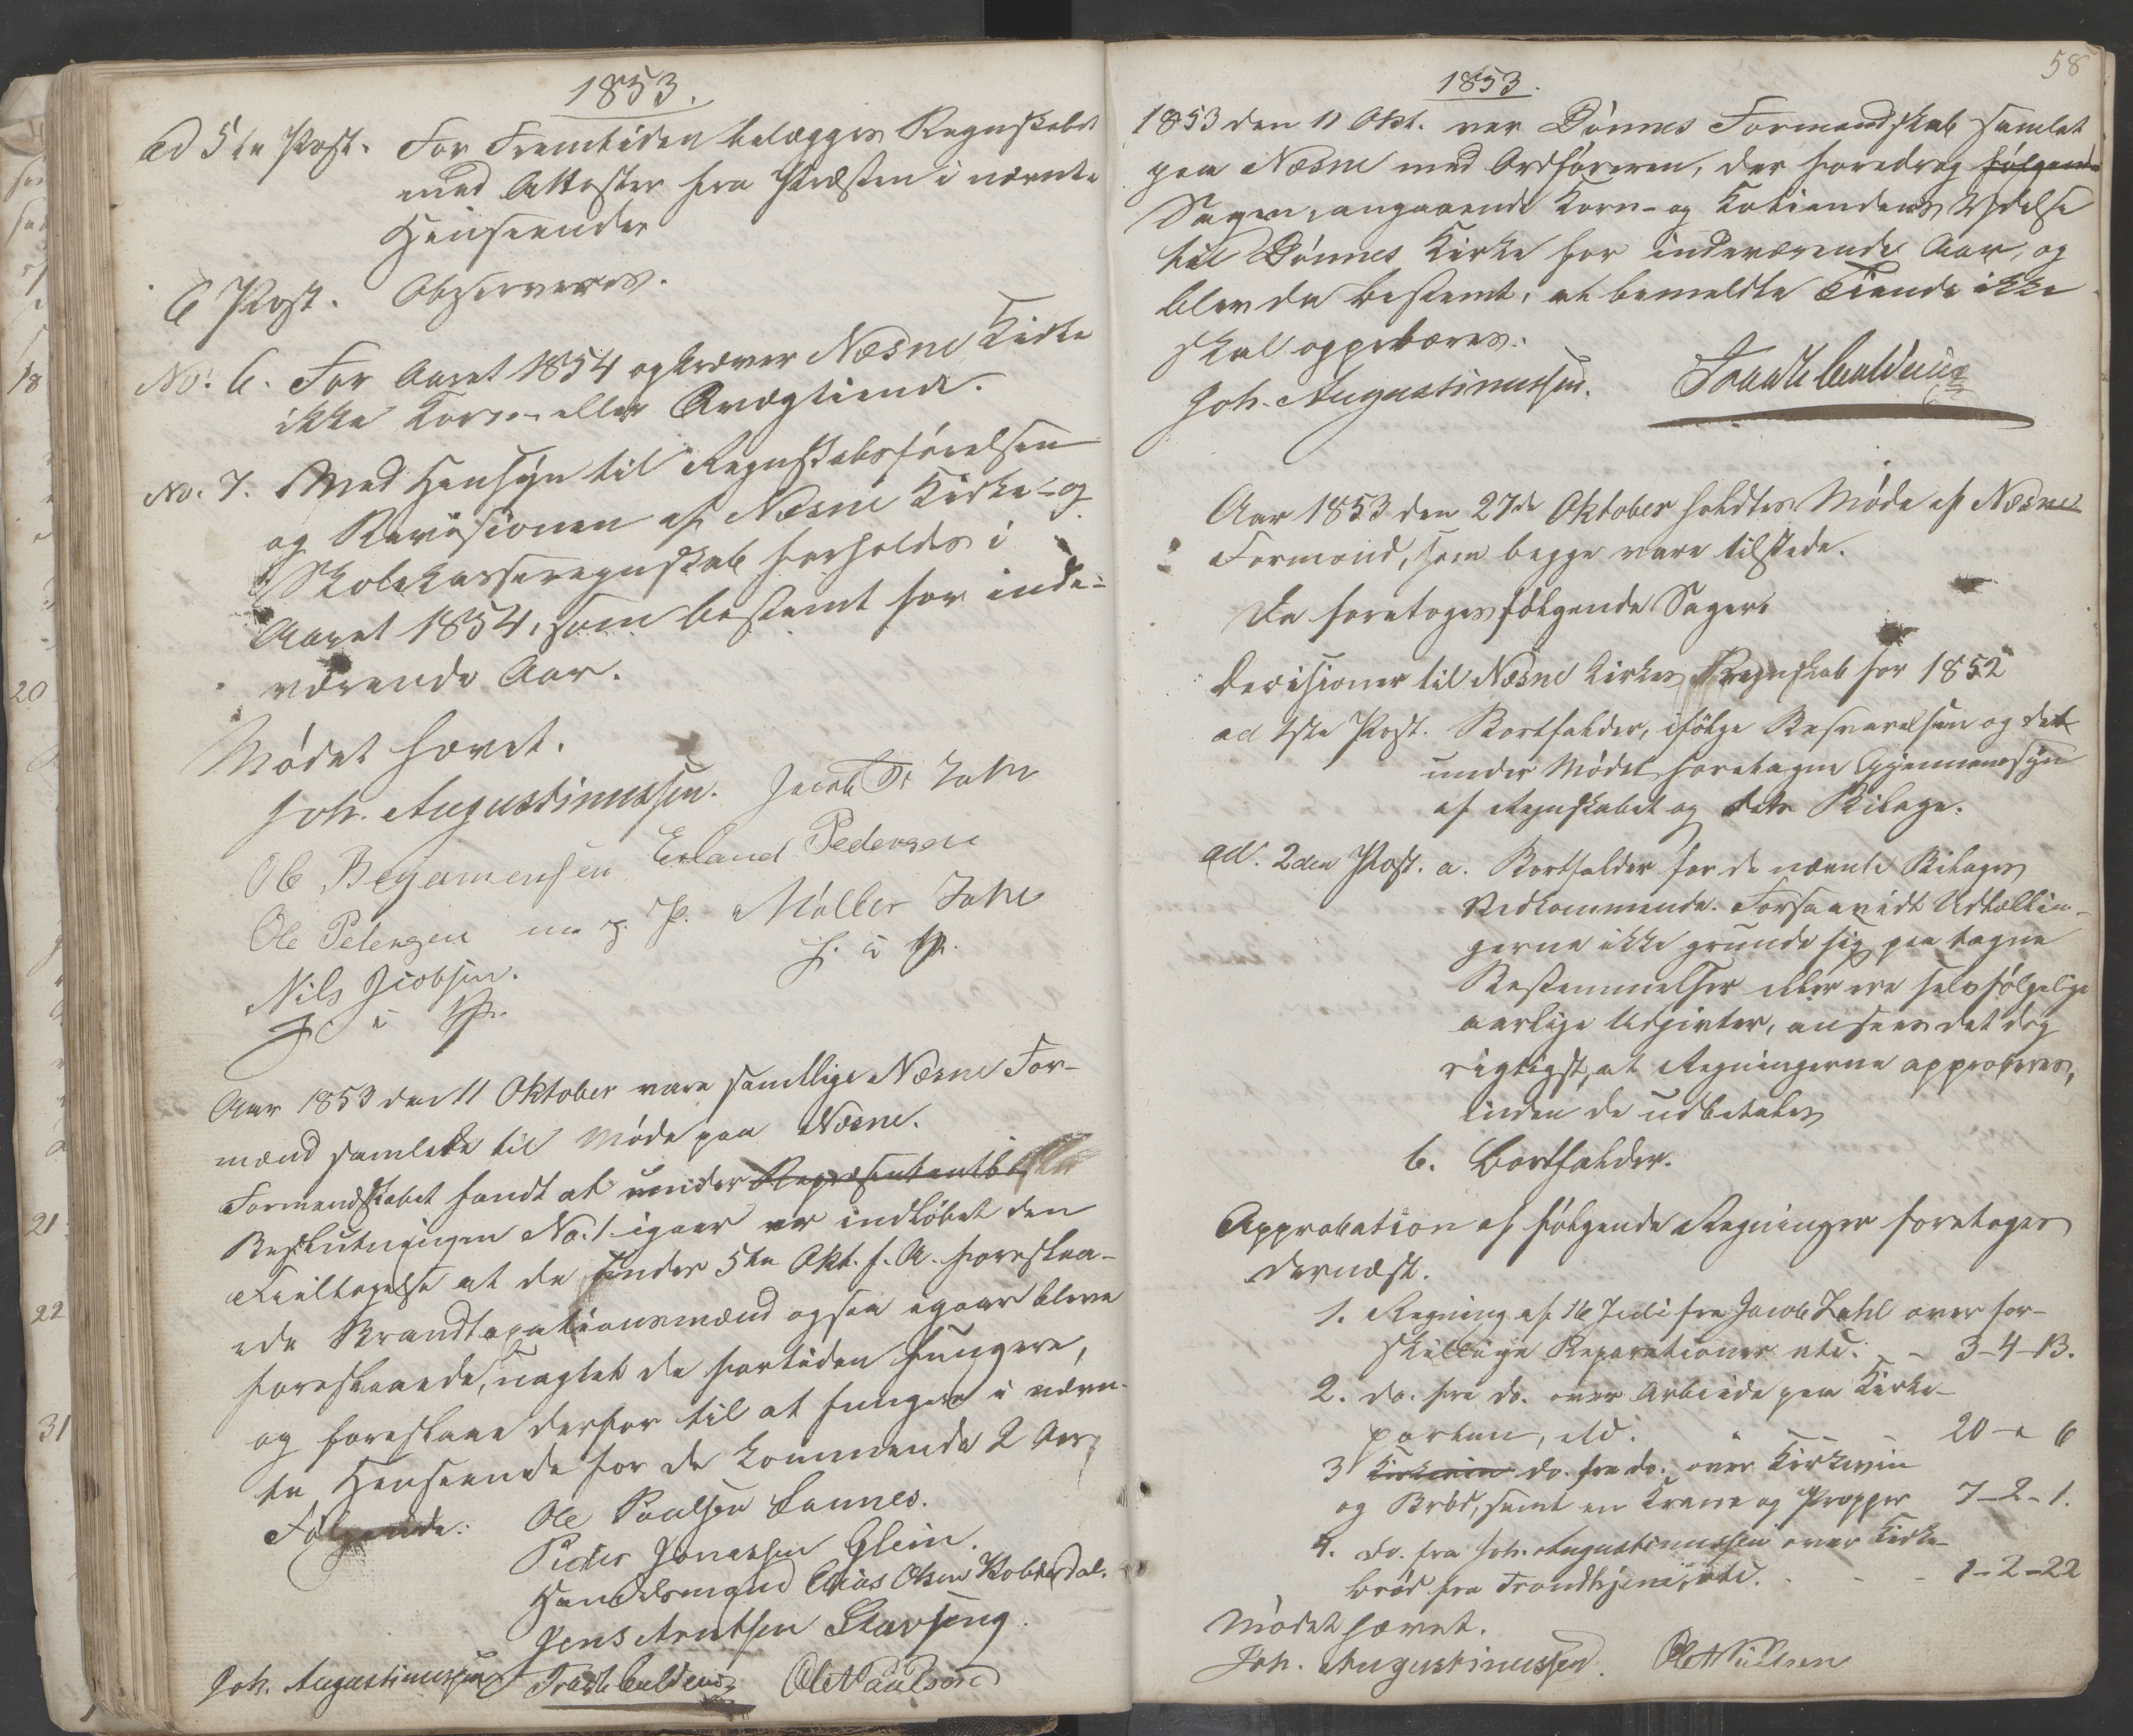 1853.
ad 5te Post. For Fremtiden belægges Regnskabet
med Attester fra Præsten i nævnte
Henseender
6 Post. Observeres.
No. 6. For Aaret 1854 opkræver Næsne Kirke
ikke Korn- eller Qvægtiende.
No. 7. Med Hensyn til Regnskabsførelsen
og Revisionen af Næsne Kirke- og
Skolekasseregnskab forholdes i
Aaret 1854, som bestemt for inde-
værende Aar.
Mødet hævet.
Joh. Augustinussen. Jacob Zahl
Ole Benjamensen Erland Pedersen
Ole Petersen m. p. P. Møller Zahl
Nils Jcobsen. f. i P.
f. i P.
Aar 1853 den 11 Oktober vare samtlige Næsne For-
mænd samlede til Møde paa Næsne.
Formandskabet fandt at under
Beslutningen No. 1 igaar var indløbet den
Feiltagelse at de under 5te Okt. f. A. foreslaa-
ede Brandtaxationsmænd ogsaa igaar bleve
foreslaaede, uagtet de fortiden fungere,
og foreslaae derfor til at fungere i nævn-
te Henseende for de kommende 2 Aar,
Følgende: Ole Paulsen Sannes.
Peder Jonassen Glein.
Handelsmand Elias Olsen Kobberdal.
Jens Arntsen Stavseng.
Joh. Augustinussen Ole A Paulsen
58
1853.
1853 den 11 Okt. var Dønnes Formandskab samlet
paa Næsne med Ordføreren, der foredrog følgende
Sagen angaaende Korn- og Kotiendens Ydelse
til Dønnes Kirke for indeværende Aar, og
blev da bestemt, at bemeldte Tiende ikke
skal oppebæres.
Joh. Augustinussen.
Aar 1853 den 27de Oktober holdtes Møde af Næsne
Formænd, som begge vare tilstede.
Da foretoges følgende Sager:
Decisioner til Næsne Kirkes Regnskab for 1852
ad 1ste Post. Bortfalder, ifølge Besvarelsen og det
under Mødet foretagne Gjennemsyn
af Regnskabet og dets Bilage.
ad. 2den Post. a. Bortfalder for de nævnte Bilages
Vedkommende. Forsaavidt Udtællin-
gerne ikke grunde sig paa tagne
Bestemmelser eller ere selvfølgelige
aarlige Udgivter, ansees det dog
rigtigst, at Regningerne approberes,
inden de udbetales
b. Bortfalder.
Approbation af følgende Regninger foretoges
dernæst.
1. Regning af 16 Juli fra Jacob Zahl over for-
skjellige Reparationer etc. - 3-4-13.
2. do. fra do. over Arbeide paa Kirke-
porten, etc. - 20 - " 6
3 Kirkeviin do. fra do. over Kirkeviin
og Brød, samt en Krane og Propper 7-2-1.
4. do. fra Joh. Augustinussen over Kirke-
brød fra Trondhjem, etc. - - - 1-2-22
Mødet hævet.
Joh. Augustinussen. Ole A Paulsen